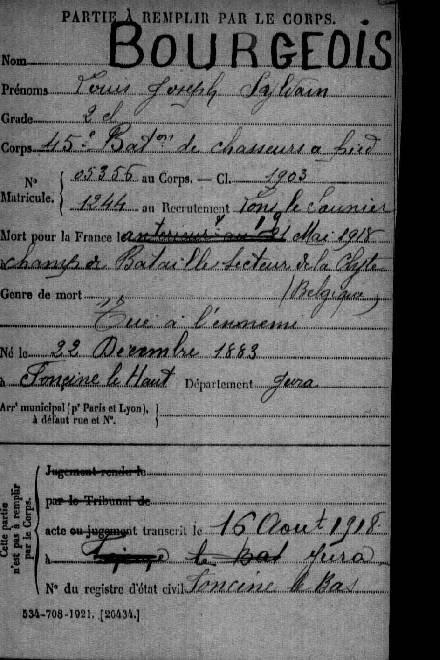 PARTIE À REMPLIR PAR LE CORPS.
Nom BOURGEOIS
Prénoms Louis Joseph Sylvain
Grade 2 cl
Corps 45e Baton de chasseurs a pied
N° Matricule. { 05356 au Corps. — Cl. 1903
1244 au Recrutement Lons le Saunier
Mort pour la France le Mai 1918
champ de Bataille secteur de la Clyte
Genre de mort (Belgique)
Tué à l'ennemi
Né le 22 Décembre 1883
à Foncine le Haut Département Jura
Arrt municipal (pr Paris et Lyon), à défaut rue et N°.
Cette partie n'est pas à remplir par le Corps.
Jugement rendu le
par le Tribunal de
acte ou jugement transcrit le 16 Aout 1918
à le Bas Jura
N° du registre d'état civil Foncine le Bas
534-708-1921. [26434.]